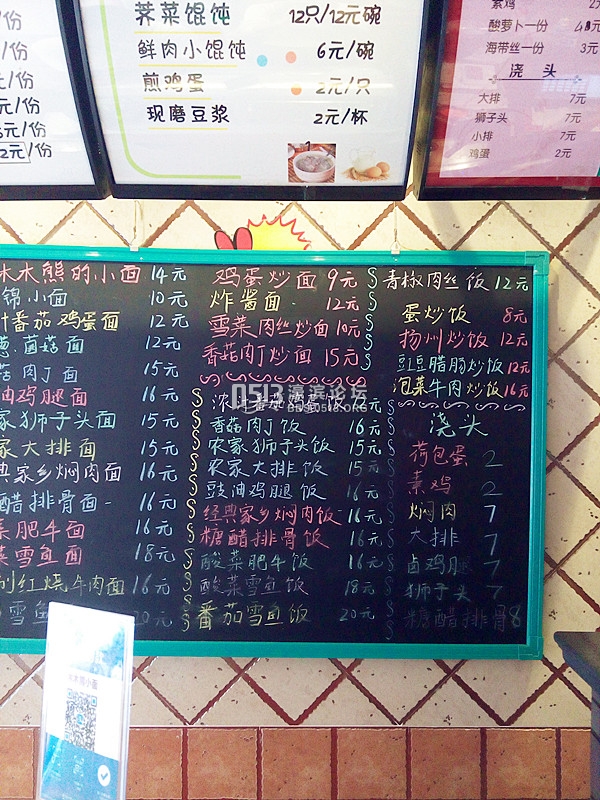 /份
/份
元/份
元/份
2元/份
荠菜馄饨 12只/12元碗
鲜肉小馄饨 6元/碗
煎鸡蛋 2元/只
现磨豆浆 2元/杯
素鸡 2元
酸萝卜一份
海带丝一份 3元
浇头
大排 7元
狮子头 7元
小排 7元
鸡蛋 2元
木木熊的小面 14元
锦小面 10元
番茄鸡蛋面 12元
菌菇面 12元
菇肉丁面 15元
油鸡腿面 16元
家狮子头面 15元
家大排面 15元
典家乡焖肉面 16元
醋排骨面 16元
菜肥牛面 16元
菜雪鱼面 18元
红烧牛肉面 16元
雪鱼
20元
鸡蛋炒面 9元
炸酱面 12元
雪菜肉丝炒面 10元
香菇肉丁炒面 15元
香菇肉丁饭 16元
农家狮子头饭 15元
农家大排饭 15元
豉油鸡腿饭 16元
经典家乡焖肉饭 16元
糖醋排骨饭 16元
酸菜肥牛饭 16元
酸菜雪鱼饭 18元
番茄雪鱼饭 20元
青椒肉丝饭 12元
蛋炒饭 8元
扬州炒饭 12元
豇豆腊肠炒饭 12元
泡菜牛肉炒饭 16元
浇头
荷包蛋 2
素鸡 2
焖肉 7
大排 7
卤鸡腿 7
狮子头 7
糖醋排骨 8
0513濠滨论坛
BBS.0513.ORG
木木熊小面